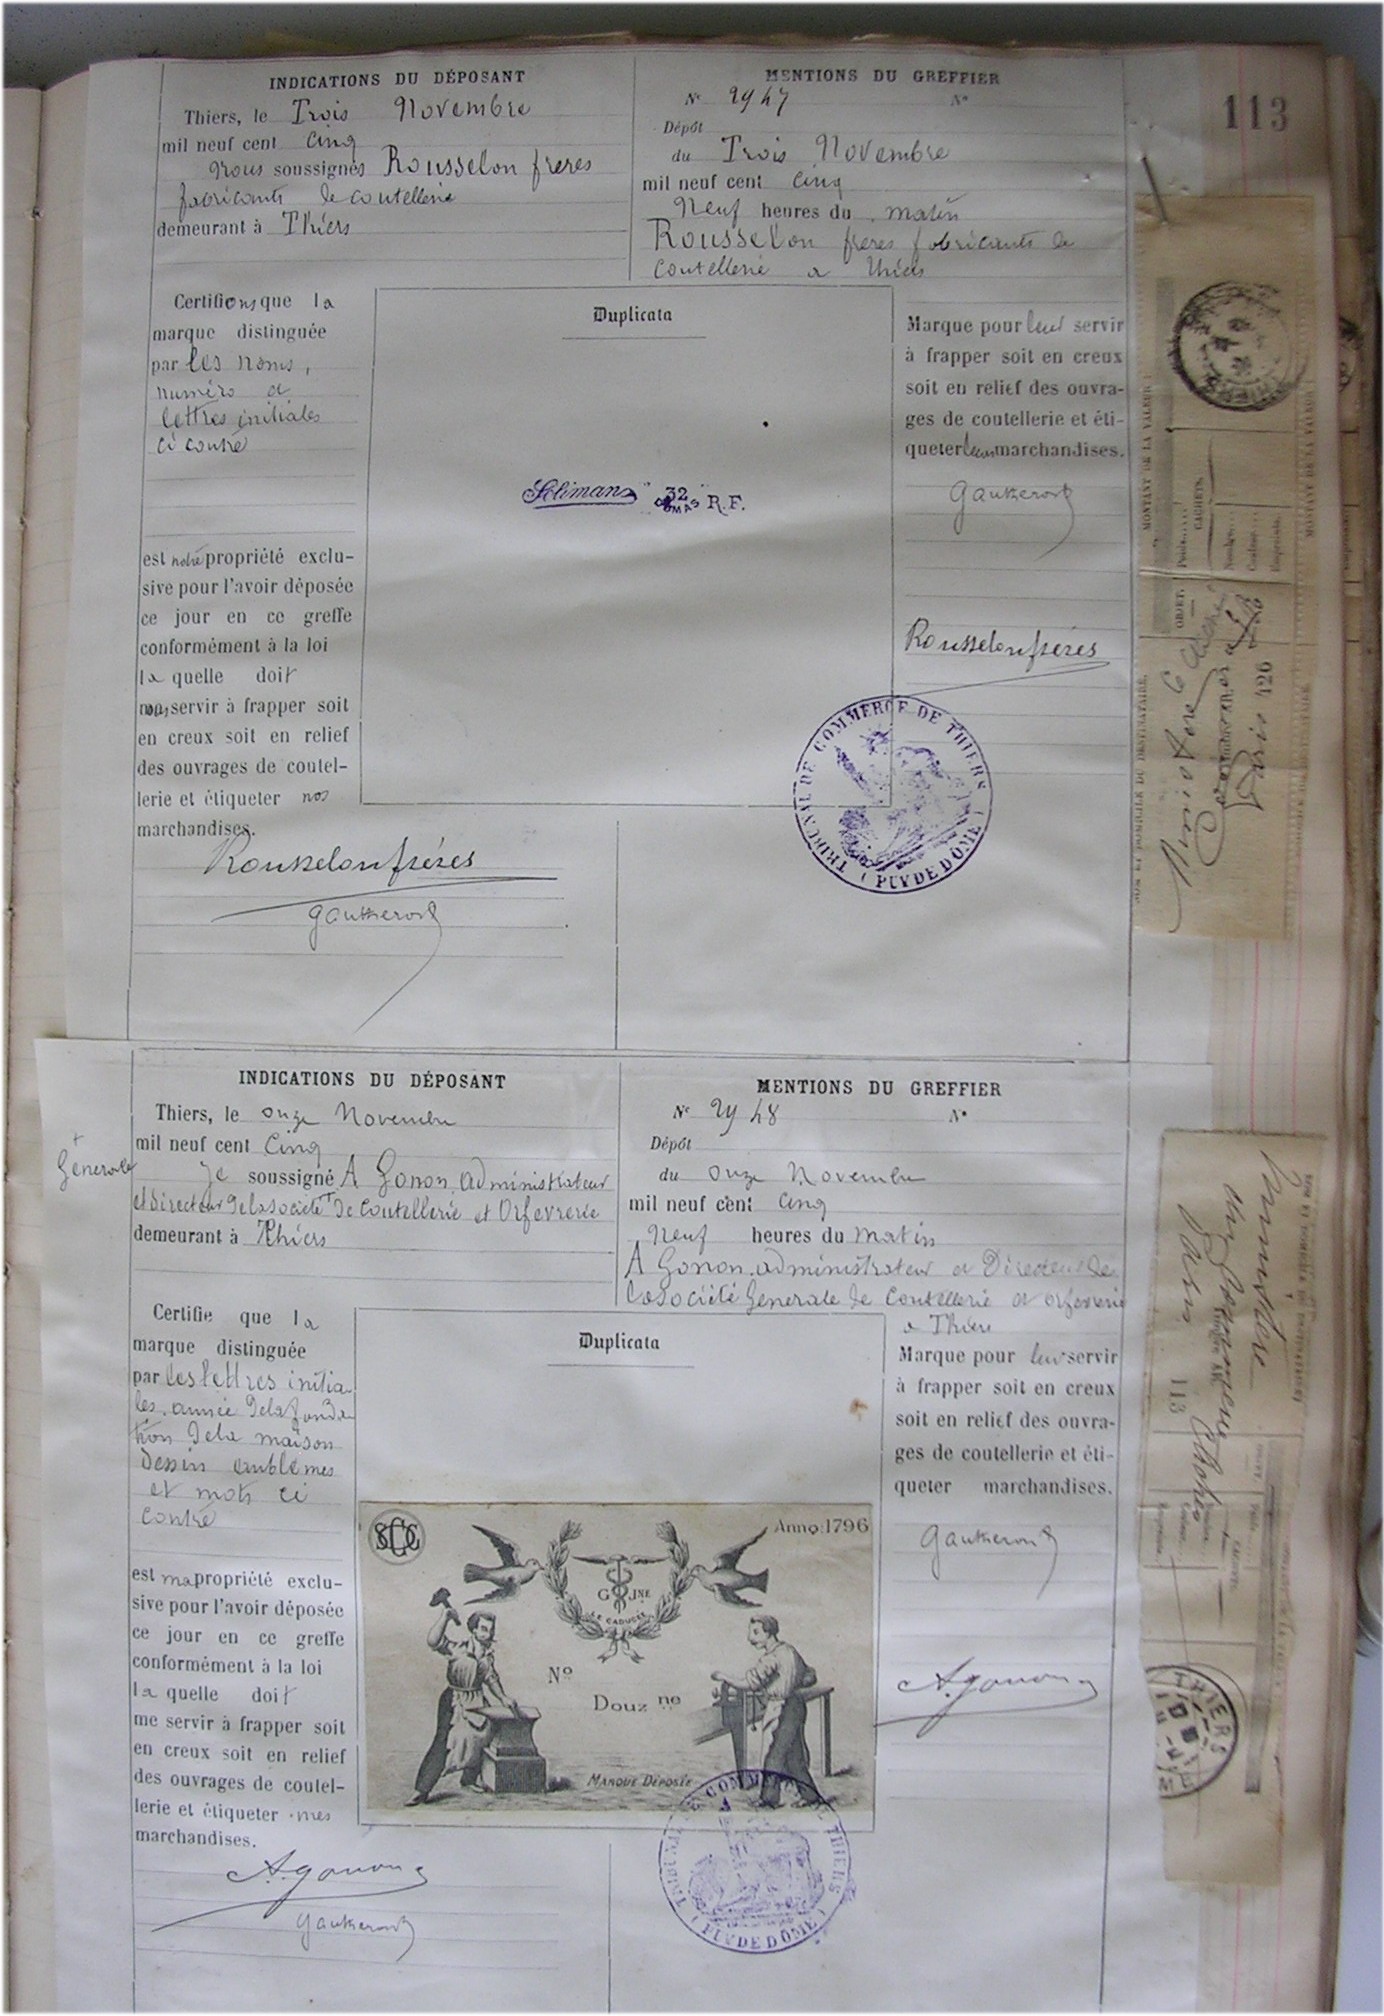 113
INDICATIONS DU DÉPOSANT
Thiers, le Trois Novembre
mil neuf cent Cinq
Nous soussignés Rousselon freres
fabricants de coutellerie
demeurant à Thiers
MENTIONS DU GREFFIER
No 2947 No
Dépôt
du Trois Novembre
mil neuf cent cinq
Neuf heures du matin
Rousselon freres fabricants de
coutellerie a Thiers
Certifions que la
marque distinguée
par les noms,
numéro et
lettres initiales
ci contre
est notre propriété exclu-
sive pour l'avoir déposée
ce jour en ce greffe
conformément à la loi
la quelle doit
nous servir à frapper soit
en creux soit en relief
des ouvrages de coutel-
lerie et étiqueter nos
marchandises.
Rousselon frères
Gautheront
Duplicata
32
DUMAS R.F.
Marque pour leur servir
à frapper soit en creux
soit en relief des ouvra-
ges de coutellerie et éti-
queter leurs marchandises.
Gautheront
Rousselon frères
TRIBUNAL DE COMMERCE DE THIERS
(PUY DE DÔME)
INDICATIONS DU DÉPOSANT
Thiers, le onze Novembre
mil neuf cent Cinq
Je soussigné A Gonon, administrateur
et directeur de la société + de Coutellerie et Orfevrerie
+
Generale
demeurant à Thiers
MENTIONS DU GREFFIER
No 2948 No
Dépôt
du onze Novembre
mil neuf cent cinq
Neuf heures du matin
A Gonon, administrateur et Directeur de
la Société Generale de Coutellerie et orfevrerie
a Thiers
Certifie que la
marque distinguée
par les lettres initia-
les, année de la fonda-
tion de la maison
dessin emblemes
et mots ci
contre
est ma propriété exclu-
sive pour l'avoir déposée
ce jour en ce greffe
conformément à la loi
la quelle doit
me servir à frapper soit
en creux soit en relief
des ouvrages de coutel-
lerie et étiqueter mes
marchandises.
A. Gonon
Gautheront
Duplicata
Anno: 1796
G JNE
LE CADUCÉE
No
Douz ne
MARQUE DÉPOSÉE
TRIBUNAL DE COMMERCE DE THIERS
(PUY DE DÔME)
Marque pour leur servir
à frapper soit en creux
soit en relief des ouvra-
ges de coutellerie et éti-
queter marchandises.
Gautheront
A. Gonon
MONTANT DE LA VALEUR
CACHETS.
OBJET.
NOM ET DOMICILE DU DESTINATAIRE.
Paris 126
Ministere
du Commerce
Paris 113
THIERS